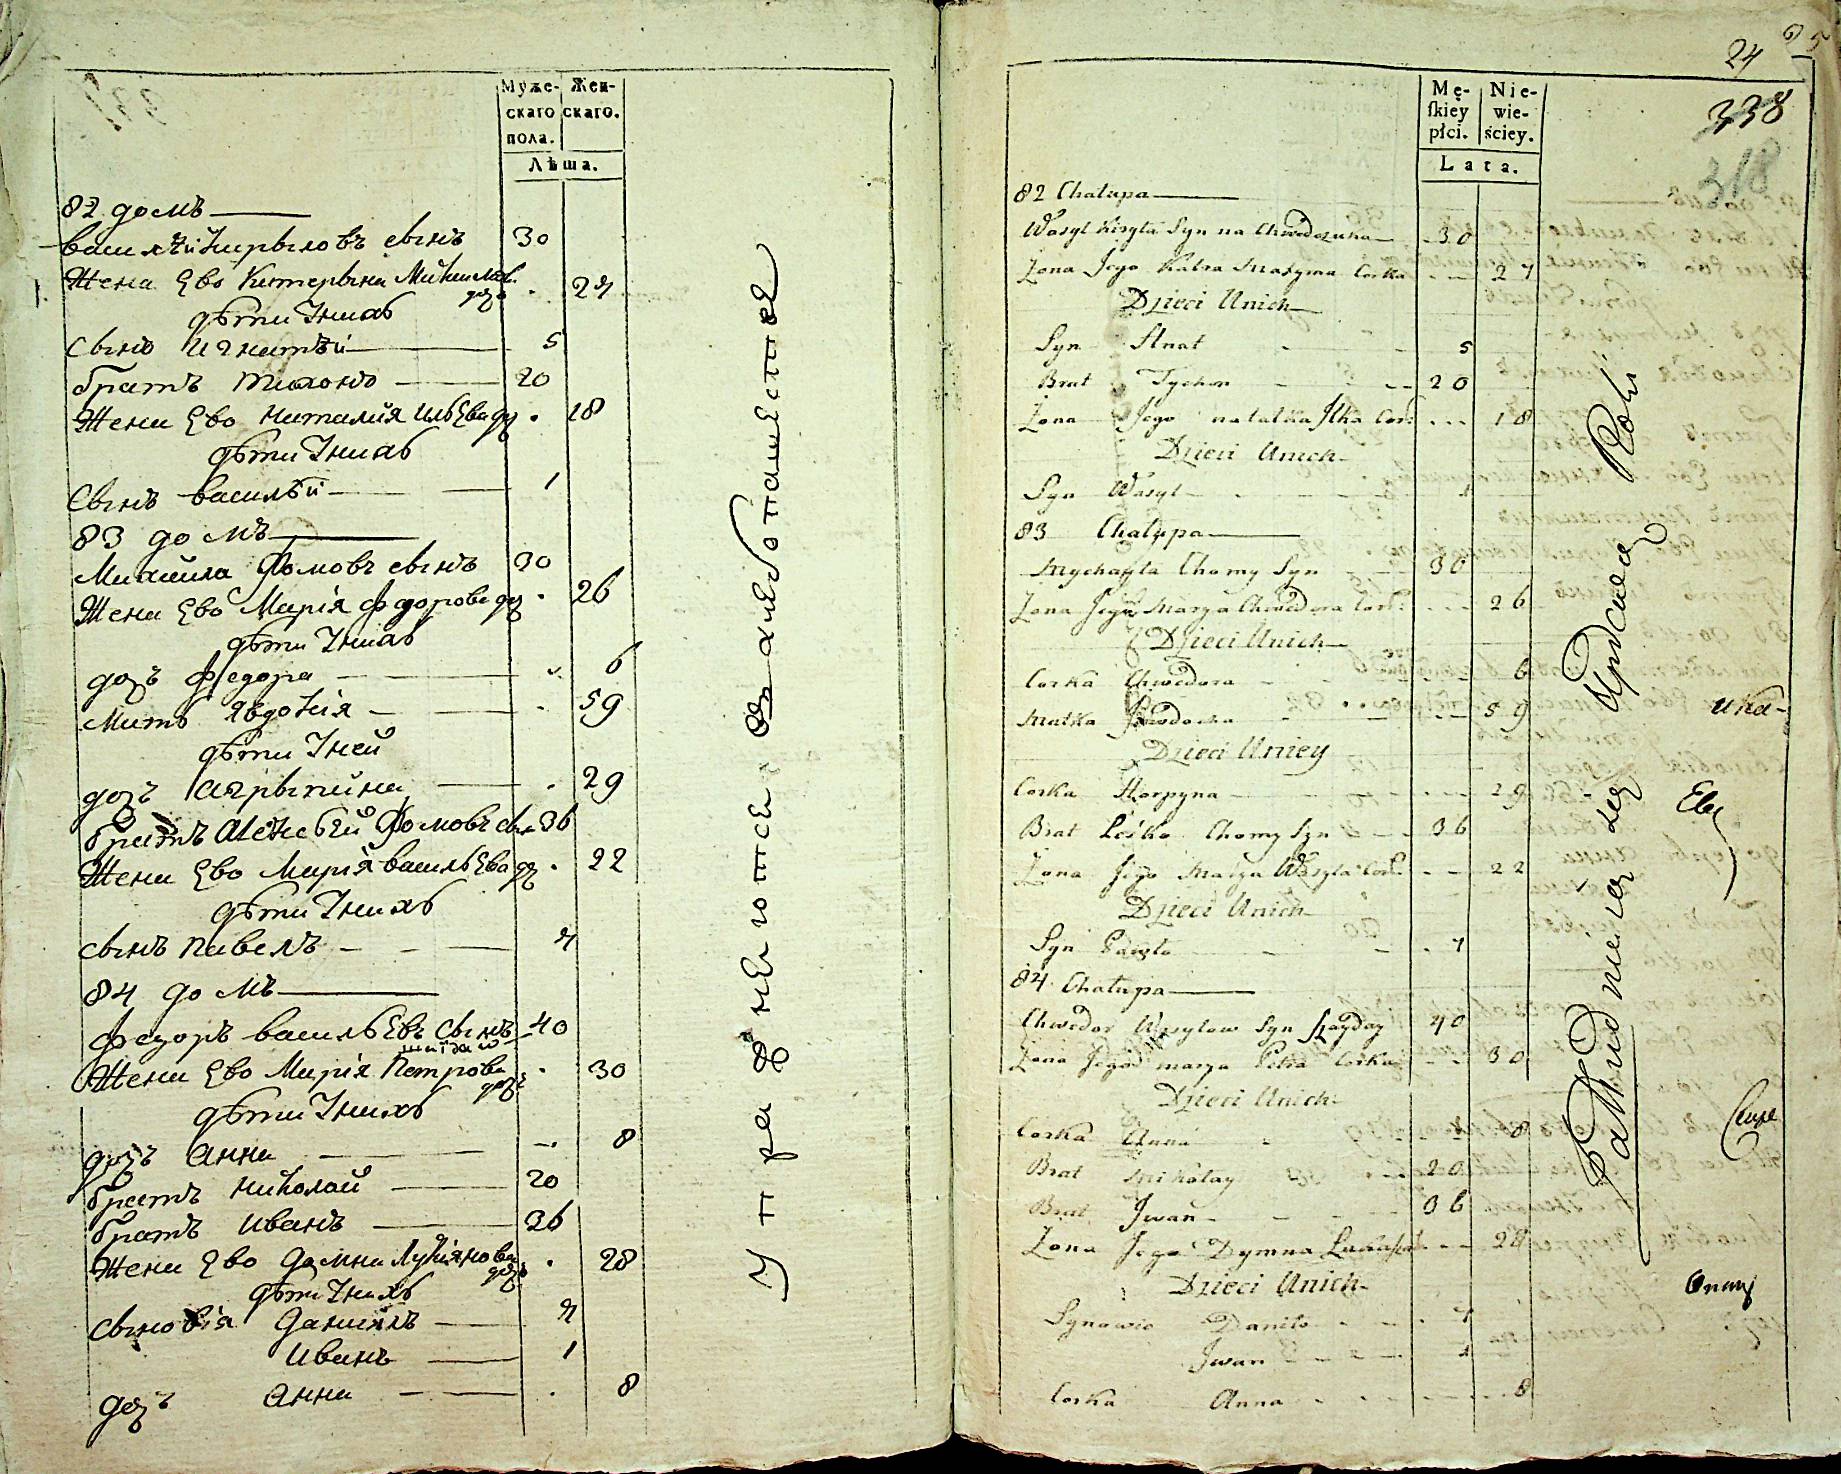 Муже-
скаго
пола.
Жен-
скаго.
Лѣта.
82 домъ
василѣй Кирыловъ сынъ 30
Жена Ево Катерына Михайлова дочъ 24
дѣти Унихъ
Сынъ Игнатѣй 5
братъ тихонъ 20
Жена Ево наталия ильЕва дочъ 18
дѣти Унихъ
Сынъ василѣй 1
83 домъ
Михайла Фомовъ сынъ 30
Жена Ево Марія Федорова дочъ 26
дѣти Унихъ
дочъ Федора 6
мать Явдокія 59
дѣти Уней
дочъ Агрыпина 29
братъ АлексѣЙ Фомовъ сынъ 36
Жена Ево Марія василЬЕва дочъ 22
дѣти Унихъ
сынъ павелъ 4
84 домъ
Федоръ василЬЕвъ Сынъ шайдай 40
Жена Ево Марія Петрова дочъ 30
дѣти Унихъ
дочъ Анна 8
братъ николай 20
братъ иванъ 36
Жена Ево Домна Лукіянова дочъ 28
дѣти Унихъ
сыновія Данійлъ 4
иванъ 1
дочъ анна 8
Упражнеются в хлеботашестве
24
338
318
Mę-
ſkiey
płci.
Nie-
wie-
ściey.
Lata.
82 Chałupa
Wasyl Kiryła Syn na Chwedczuka 30
Zona Jego Katra Maxyma Corka 24
Dzieci Unich
Syn Hnat 5
Brat Tychon 20
Zona Jego natalka Jlka Cor: 18
Dzieci Unich
Syn Wasyl 1
83 Chałupa
Mychayła Chomy Syn 30
Zona Jego Marya Chwedora Cor: 26
Dzieci Unich
Corka Chwedora 6
Matka Jawdocha 59
Dzieci Uniey
Corka Horpyna 29
Brat Leśko Chomy Syn 36
Zona Jego Marya Wasyla Cor: 22
Dzieci Unich
Syn Pawło 4
84 Chałupa
Chwedor Wasylow Syn Szayday 40
Zona Jego marya Petra Corka 30
Dzieci Unich
Corka Anna 8
Brat Mikołay 20
Brat Jwan 36
Zona Jego Dymna 28
Dzieci Unich
Synowie Daniło 4
Jwan 1
Corka Anna 8
Roli